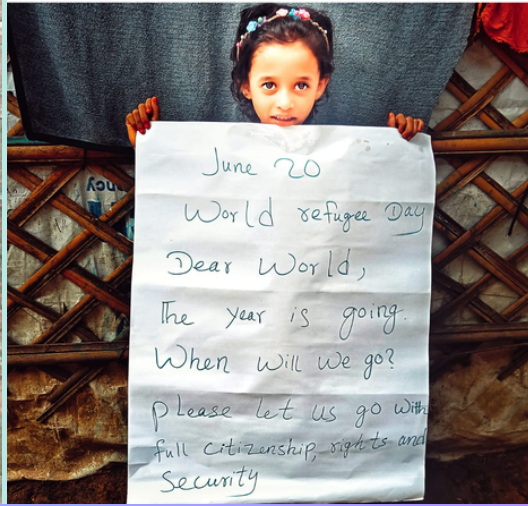 June 20
World refugee Day
Dear World,
The year is going.
When will we go?
please let us go with
full citizenship, rights and
Security